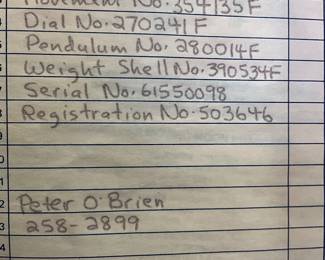 Movement No. 354135F
4 Dial No. 270241F
5 Pendulum No. 280014F
6 Weight Shell No. 390534F
7 Serial No. 61550098
8 Registration No. 503646
9
0
1
2 Peter O'Brien
3 258-2899
4